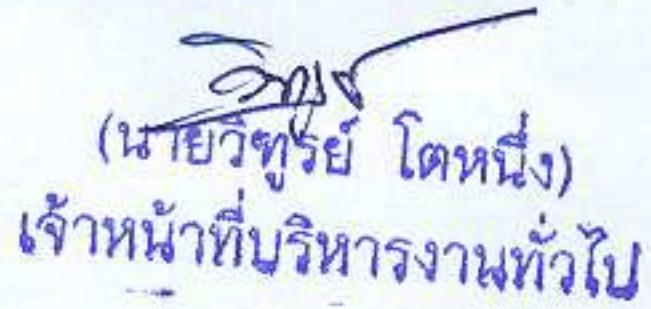 (นายวิฑูรย์ โตหนึ่ง)
เจ้าหน้าที่บริหารงานทั่วไป